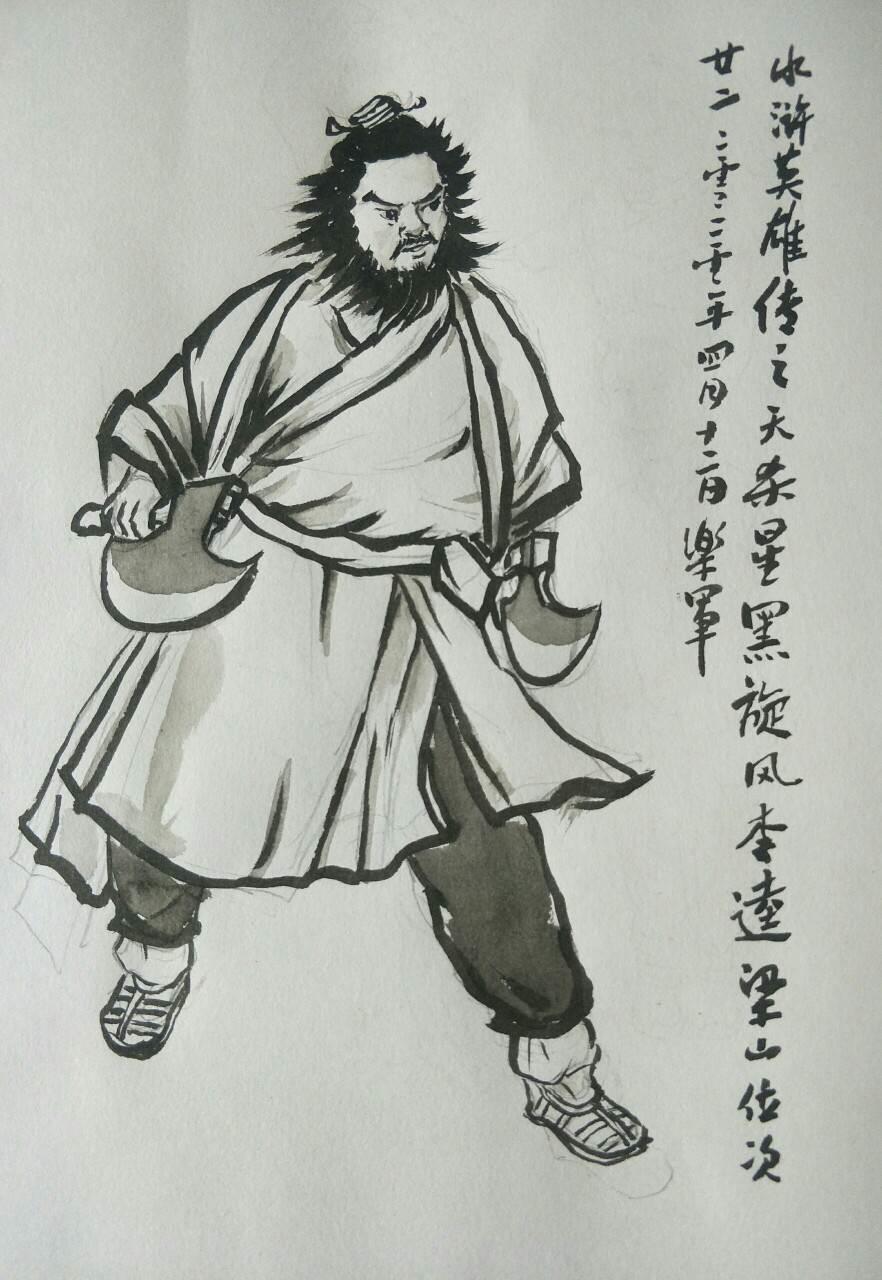 水浒英雄传之天杀星黑旋风李逵梁山位次
廿二 年四月十二日樂軍